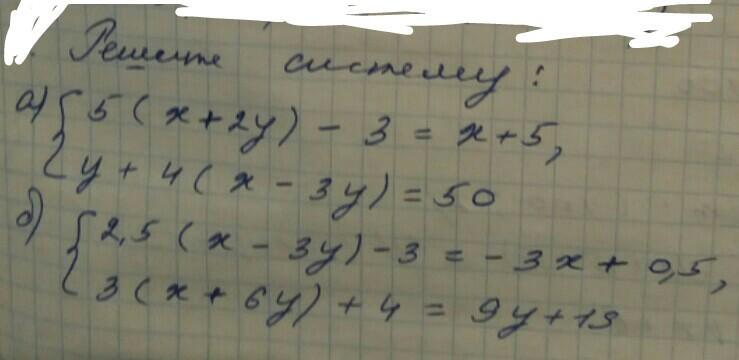 Решите систему:
а) { 5 ( x + 2y ) - 3 = x + 5,
y + 4 ( x - 3y ) = 50
б) { 2,5 ( x - 3y ) - 3 = - 3x + 0,5,
3 ( x + 6y ) + 4 = 9y + 19